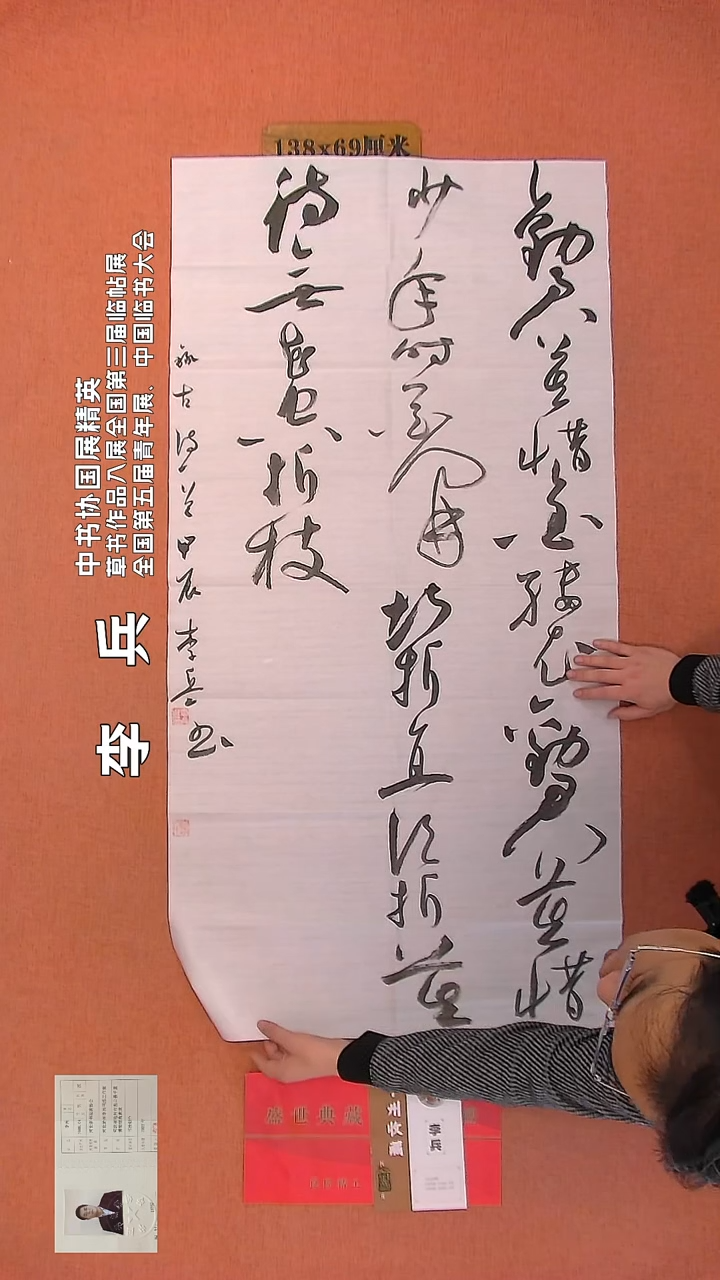 138x69厘米
勸君莫惜金縷衣勸君莫惜
少年時花開堪折直須折莫
待無花空折枝
錄古詩一首甲辰李兵书
中书协国展精英
草书作品入展全国第三届临帖展
全国第五届青年展、中国临书大会
李兵
李兵